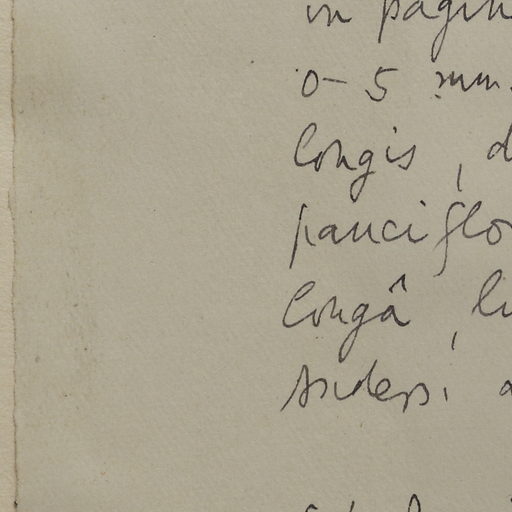 in pagin
0-5 mm.
longis, d
pauciflo
longâ, li